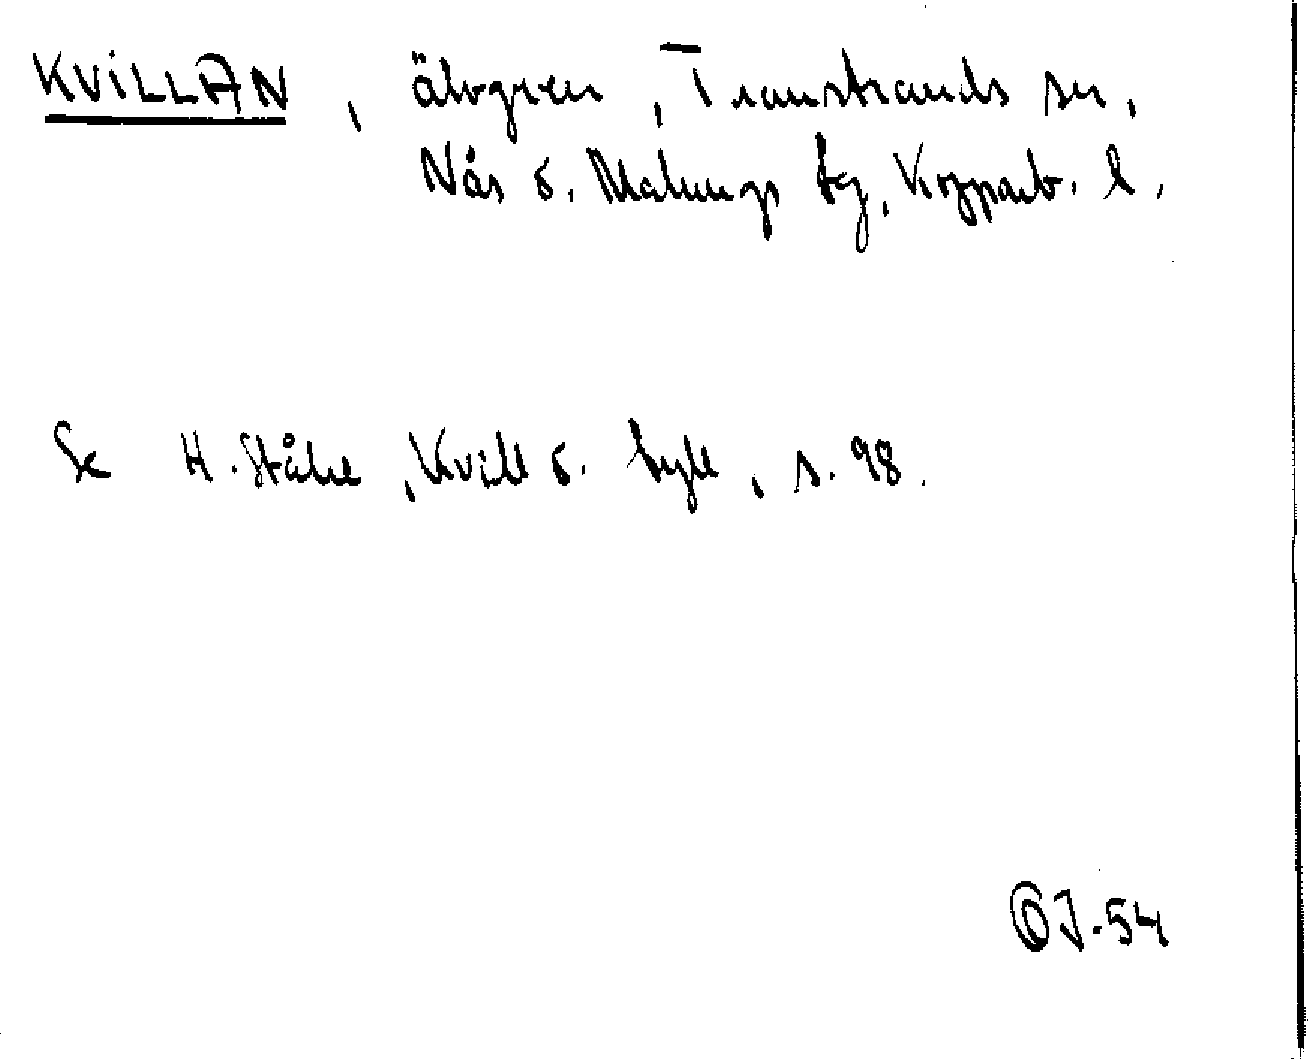 KVILLAN, älvgren, Transtrands sn,
Nås o. Malungs tg, Kopparb. l.
Se H. Ståhle, Kvill o. tyll, s. 98.
OJ-54